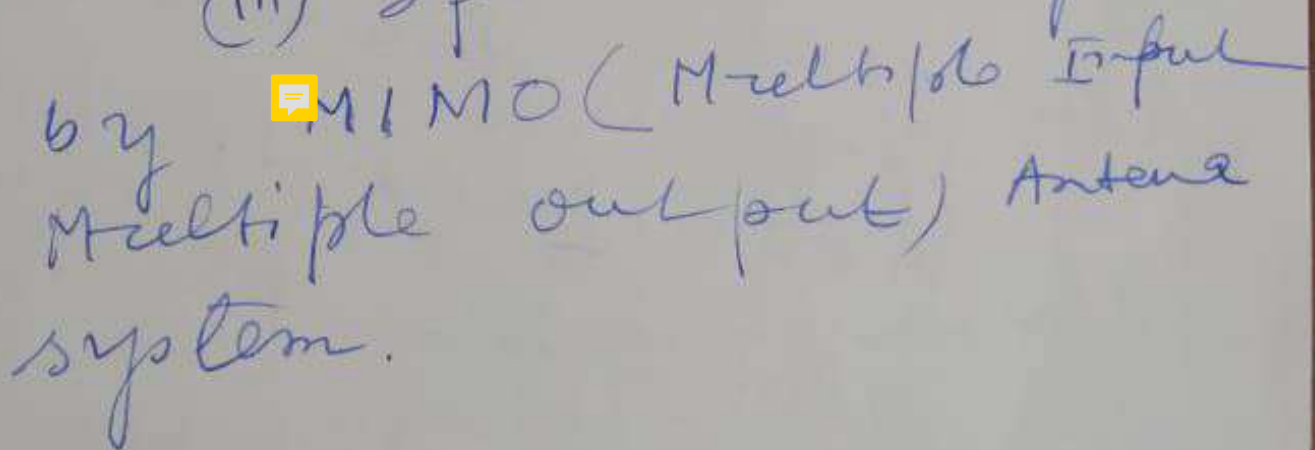 (iii)
by MIMO (Multiple Input
Multiple output) Antena
system.